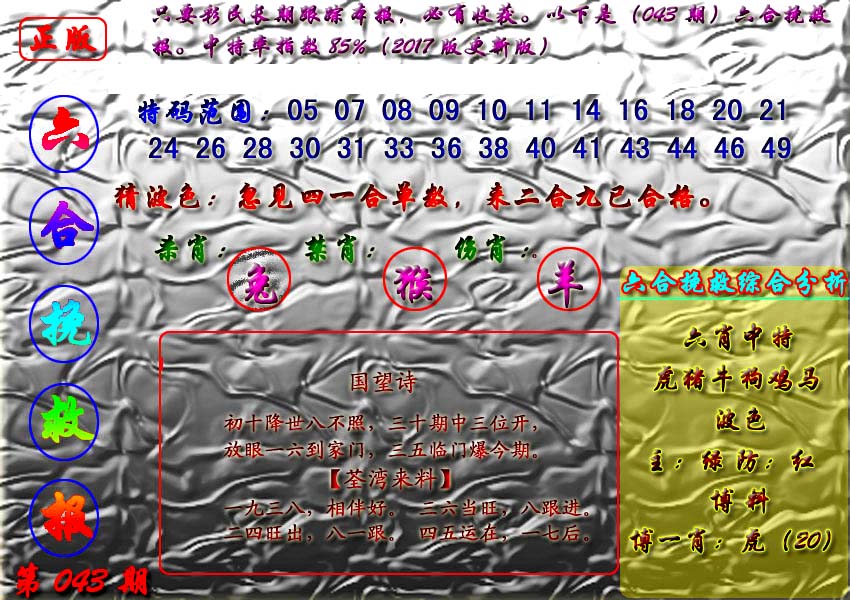 正版
只要彩民长期跟踪本报，必有收获。以下是（043 期）六合挽救
报。中特率指数 85%（2017 版更新版）
六合挽救报
第 043 期
特码范围：05 07 08 09 10 11 14 16 18 20 21
24 26 28 30 31 33 36 38 40 41 43 44 46 49
猜波色：忽见四一合单数，来二合九已合格。
杀肖：兔 禁肖：猴 伤肖：羊
国望诗
初十降世八不照，三十期中三位开，
放眼一六到家门，三五临门爆今期。
【荃湾来料】
一九三八，相伴好。 三六当旺，八跟进。
二四旺出，八一跟。 四五运在，一七后。
六合挽救综合分析
六肖中特
虎猪牛狗鸡马
波色
主：绿 防：红
博料
博一肖：虎（20）